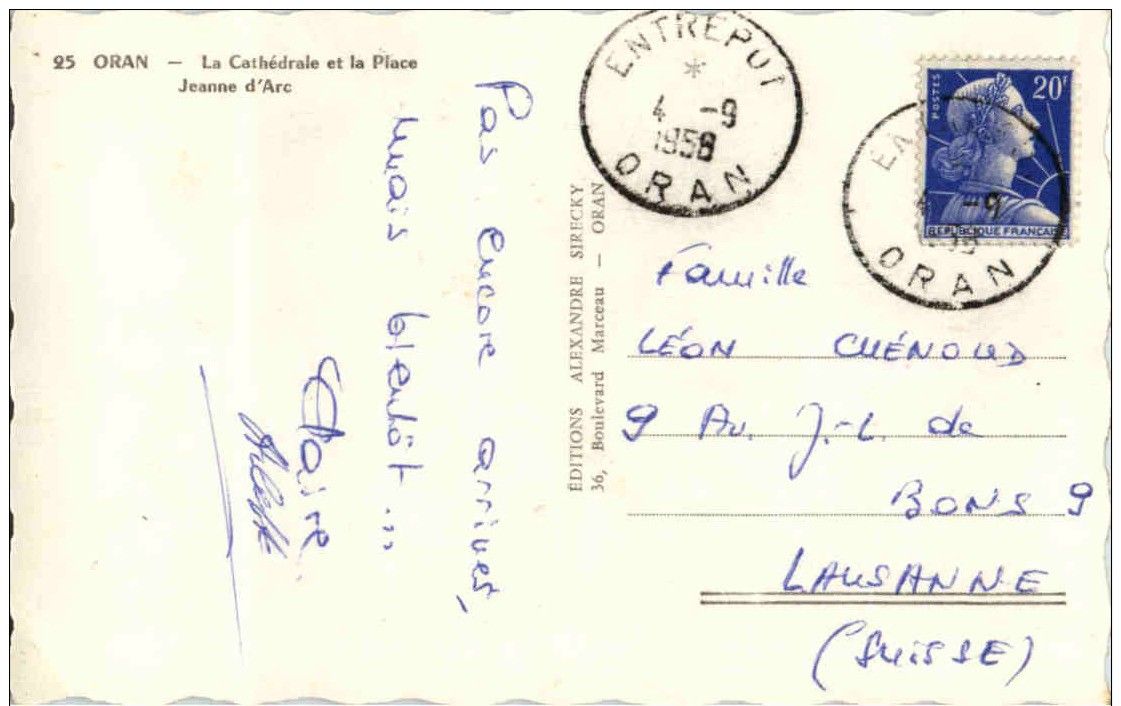 25 ORAN — La Cathédrale et la Place
Jeanne d'Arc
Pas encore arrivés,
mais bientôt...
Claire
ÉDITIONS ALEXANDRE SIRECKY
36, Boulevard Marceau — ORAN
ENTREPOT
4 -9
1958
ORAN
POSTES
20F
REPUBLIQUE FRANÇAISE
-9
ORAN
Famille
LÉON CHÉNOUD
9 Av. J.-L. de
BONS 9
LAUSANNE
(SUISSE)